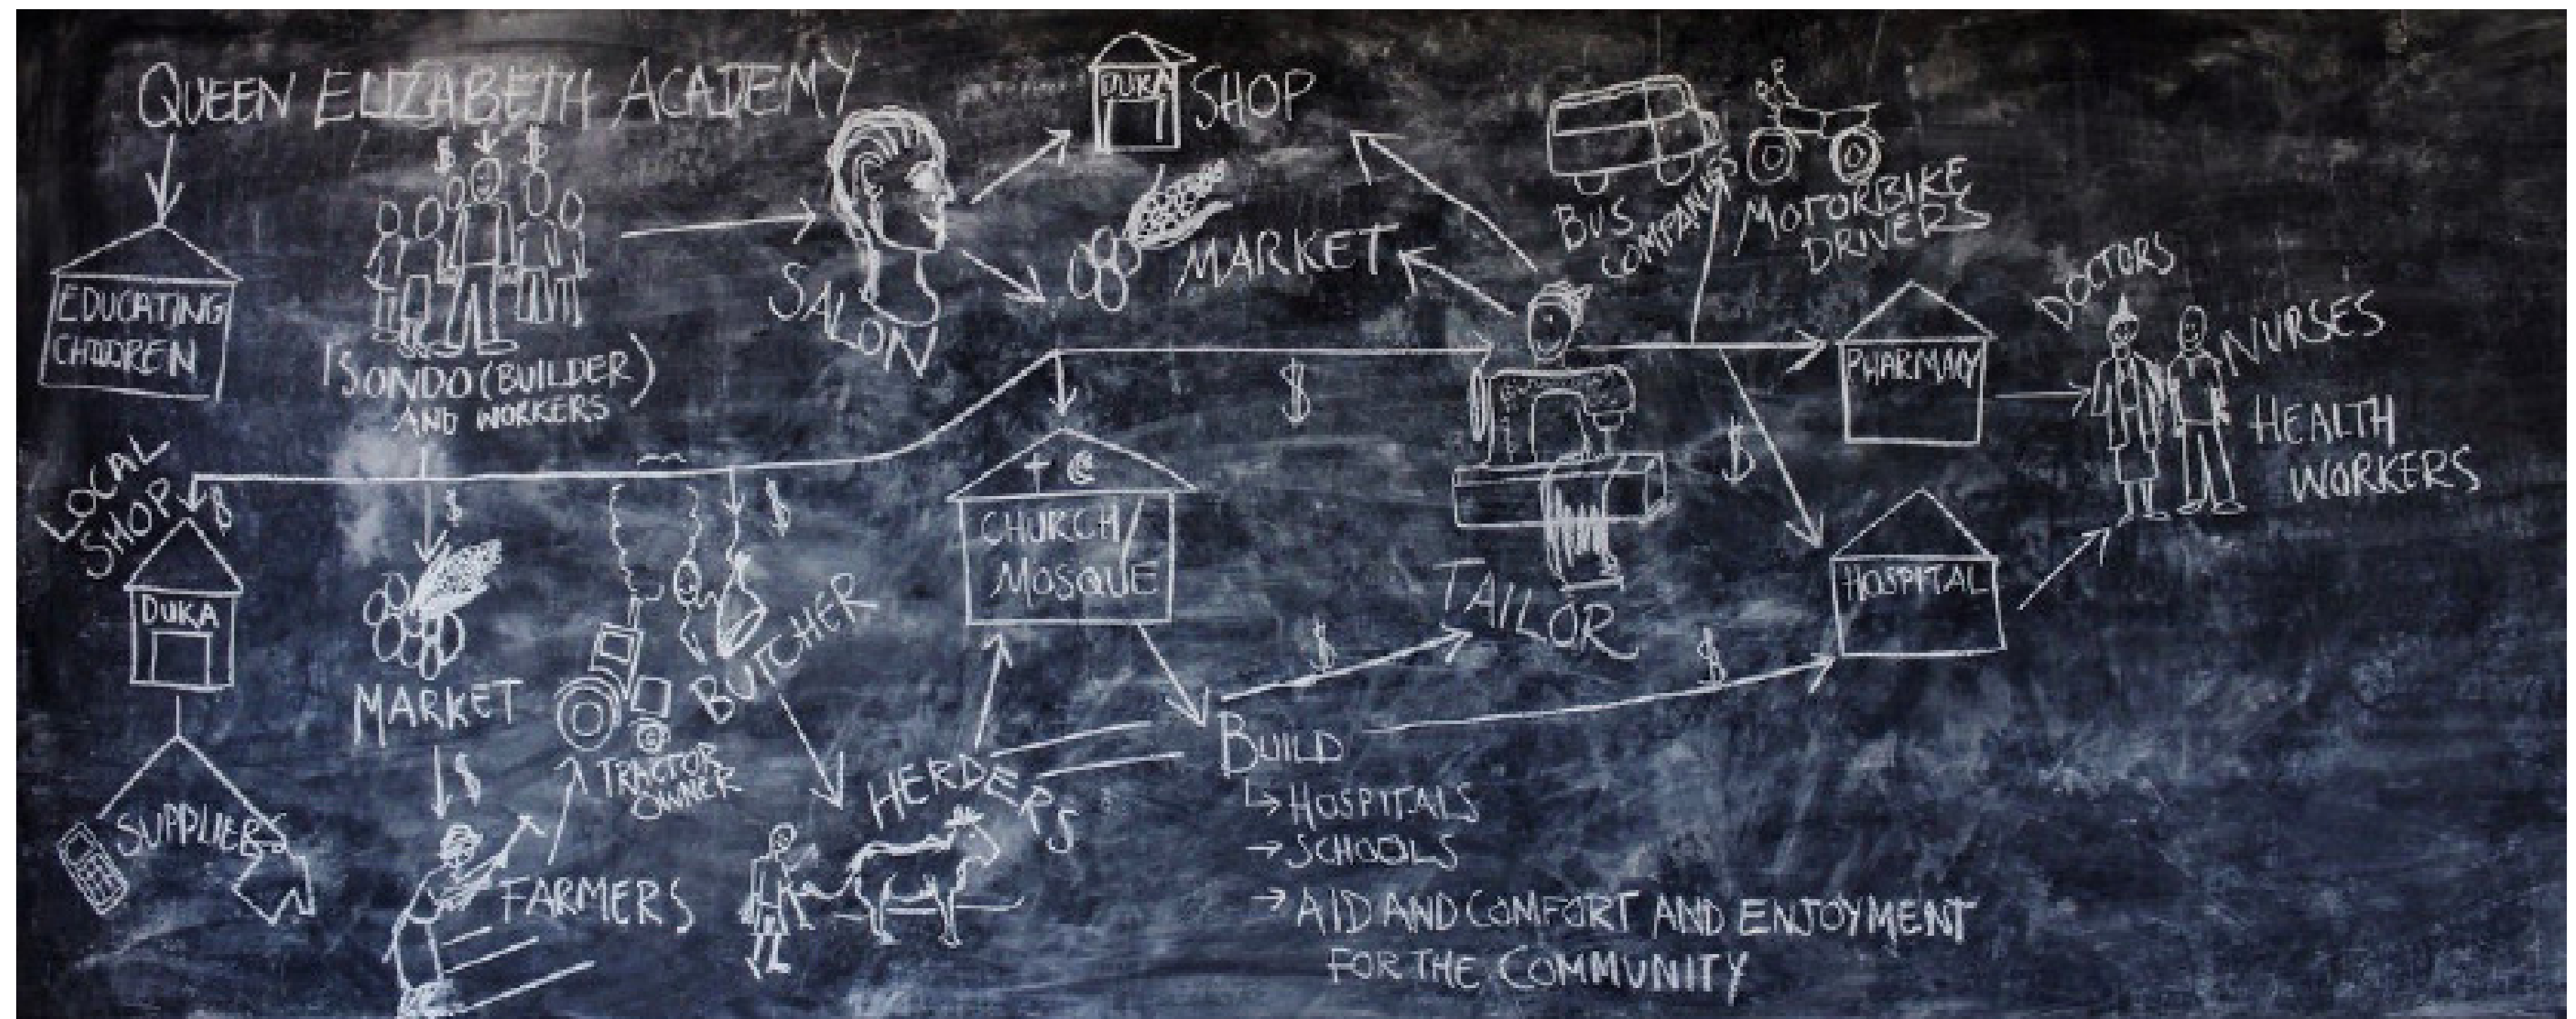 QUEEN ELIZABETH ACADEMY
DUKA
SHOP
EDUCATING
CHILDREN
SONDO (BUILDER)
AND WORKERS
SALON
MARKET
BUS
COMPANIES
MOTORBIKE
DRIVERS
PHARMAY
DOCTORS
NURSES
HEALTH
WORKERS
LOCAL
SHOP
$
$
$
$
$
$
$
DUKA
MARKET
$
SUPPLIERS
FARMERS
TRACTOR
OWNER
BUTCHER
HERDERS
CHURCH/
MOSQUE
TAILOR
HOSPITAL
$
$
BUILD
→ HOSPITALS
→ SCHOOLS
→ AID AND COMFORT AND ENJOYMENT
FOR THE COMMUNITY